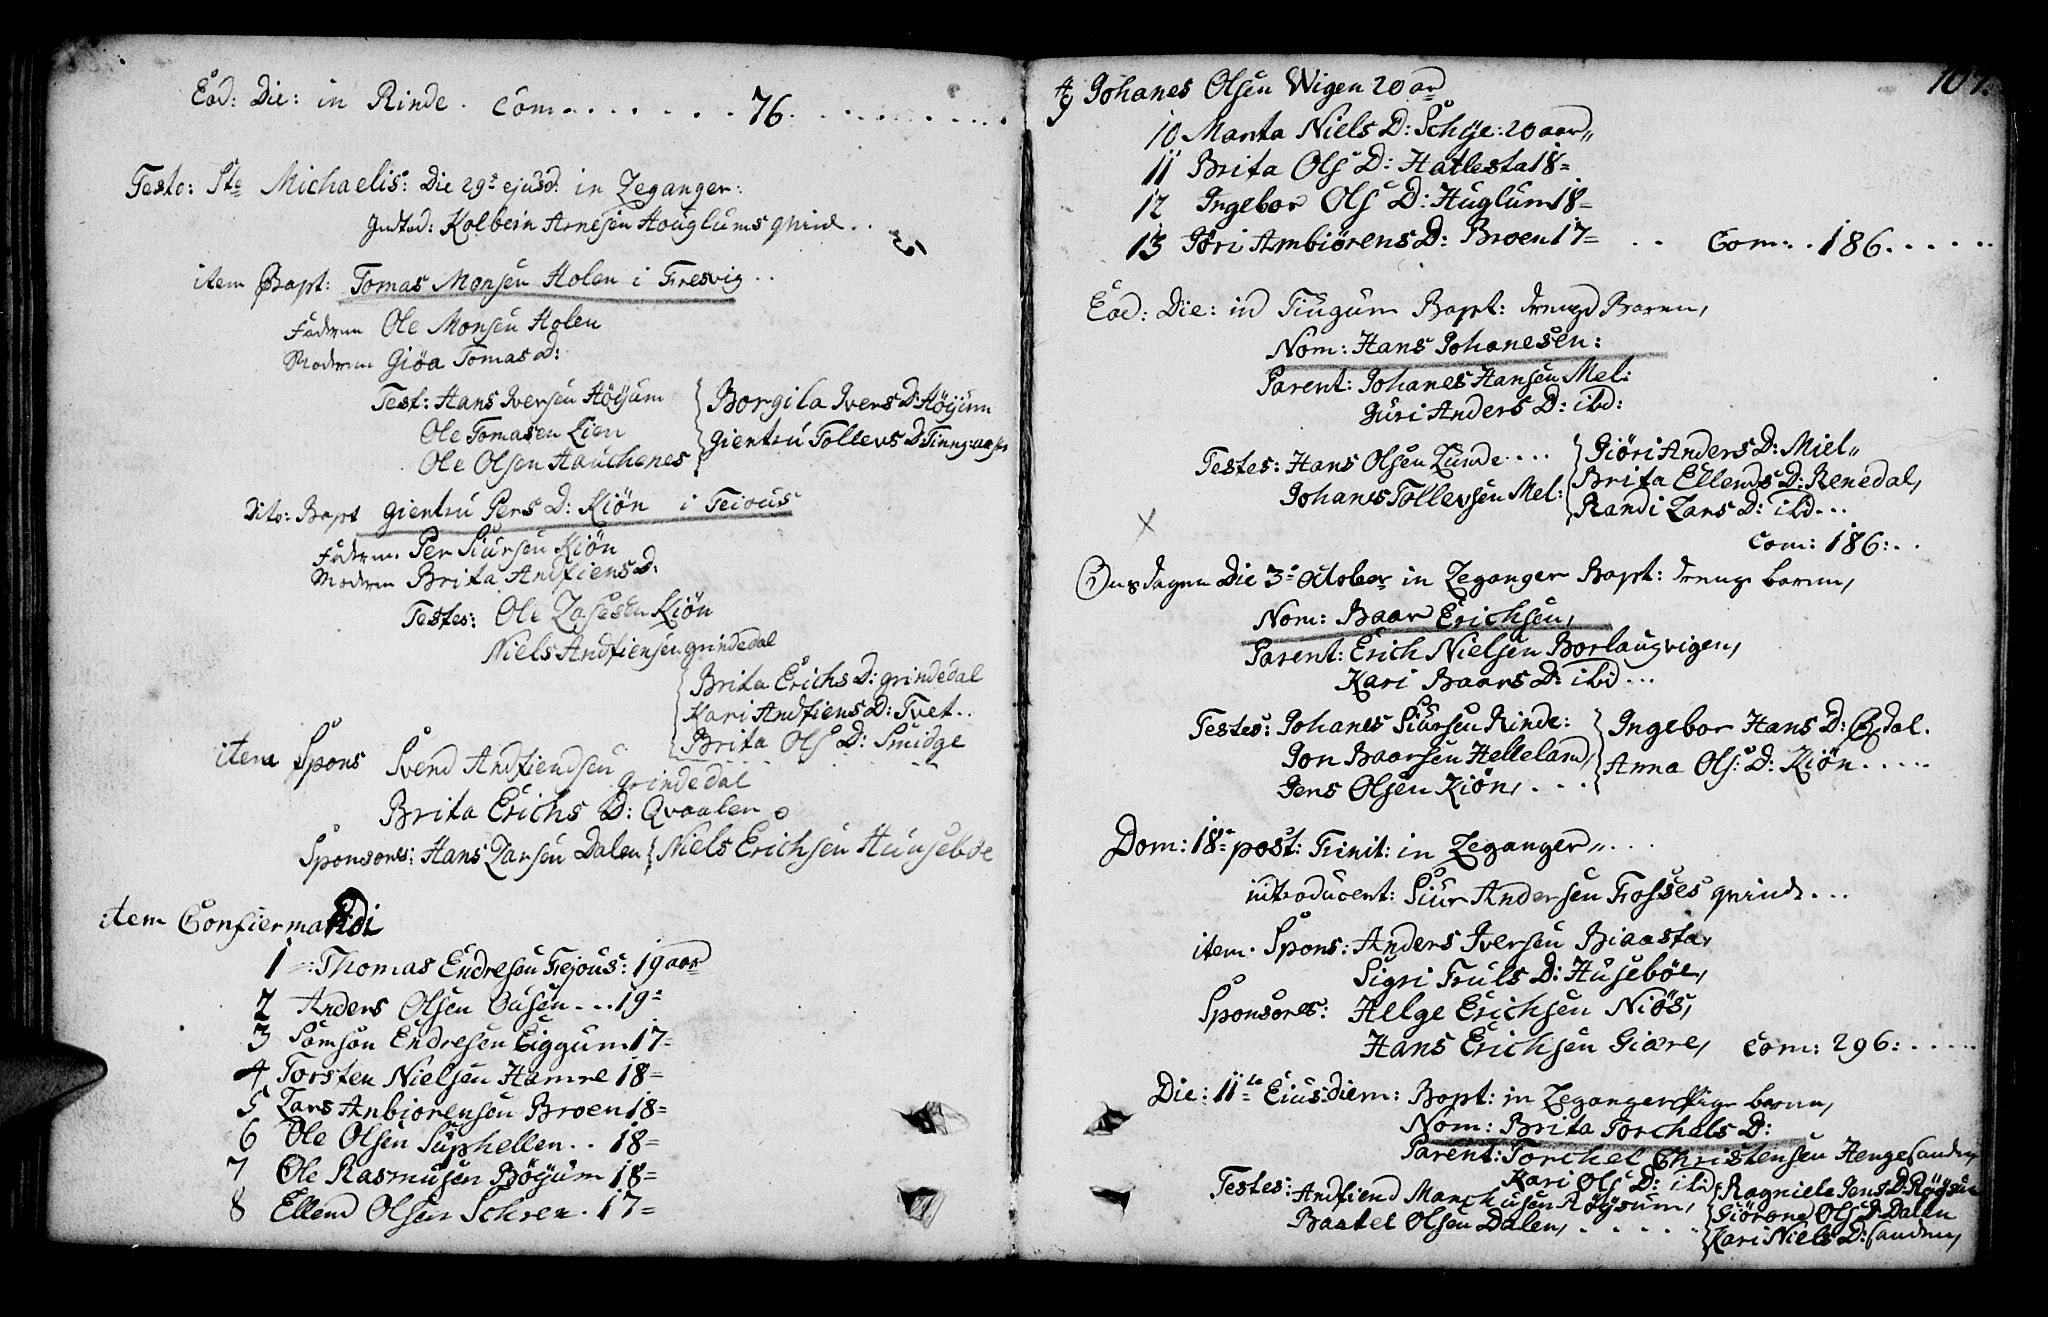 Eod: Die: in Rinde. Com. . . . . . . 76. . . . . . . . . .
Festo: Sto Michaelis: Die 29: ejusd. in Leganger:
Introd: Kolbein Arnesen Houglums qvind . .
item Bapt: Tomas Monsen Holen i Fresvig . .
Faderen Ole Monsen Holen
Moderen Giøa Tomas D:
Test: Hans Iversen Høyum { Borgila Ivers D: Høyum
Ole Tomasen Lien { Gientru Tollevs D:
Ole Olsen Hauchenes
Dito: Bapt Gientru Pers D: Kiøn i Feious
Faderen. Per Siursen Kiøn
Moderen Brita Andfiens D:
Testes: Ole Lassesen Kiøn
Niels Andfiensen Grindedal
{ Brita Erichs D: Grindedal
Kari Andfiens D: Tvet . .
Brita Ols D: Smidge
item Spons Svend Andfiendsen
Grindedal
Brita Erichs D: Qvaalen
Sponsores: Hans Larsen Dalen { Niels Erichsen Hunsebøe
item Confiermandi
1 Thomas Endresen Fejous: 19 aar
2 Anders Olsen Ousen . . . 19=
3 Samson Endresen Eiggum 17=
4 Torsten Nielsen Hamre 18=
5 Lars Anbiørensen Broen 18=
6 Ole Olsen Suphellen . . 18=
7 Ole Rasmusen Bøyum 18=
8 Ellend Olsen Schren . 17=
107.
9 Johanes Olsen Wigen 20 ar
10 Marta Niels D: Schye: 20 aar,,
11 Brita Ols D: Hatlesta 18=
12 Ingebor Ols D: Huglum 18=
13 Giøri Ambiørens D: Broen 17= . . Com: . 186. . . . . .
Eod: Die: in Tiugum Bapt: drenge Baren,
Nom: Hans Johanesen:
Parent: Johanes Hansen Mel:
Guri Anders D: ibd:
Testes: Hans Olsen Lunde . . . . { Giøri Anders D: Miel,,
Johanes Tollevsen Mel: { Brita Ellends D: Renedal,
Randi Lars D: ibd . . .
Com: 186: . .
Onsdagen Die 3: October in Leganger Bapt: drenge baren,
Nom: Baar Erichsen,
Parent: Erich Nielsen Borlaugvigen,
Kari Baars D: ibd . . .
Testes: Johanes Siursen Rinde: { Ingebor Hans D: Eydal.
Jon Baarsen Helleland, { Anna Ols: D: Kiøn . . . . .
Jens Olsen Kiøn, . . . .
Dom: 18: post: Trinit: in Leganger,, . . .
introducert: Siur Andersen Fosses qvinde . . .
item. Spons: Anders Iversen Biaasta,
Sigri Truls D: Husebøe,
Sponsores: Helge Erichsen Niøs,
Hans Erichsen Giære, Com: 296: . . . . .
Die: 11te Eiusdiem: Bapt: in Leganger Pige baren,
Nom: Brita Torchels D:
Parent: Torchel Christensen Hengesanden
Kari Ols D: ibd
Testes: Andfiend Marchusen Røysum, { Ragniela Jens D: Røysum
Baatel Olsen Dalen, . . . . . . { Giørone Ols D: Dalen
Kari Niels D: sanden,